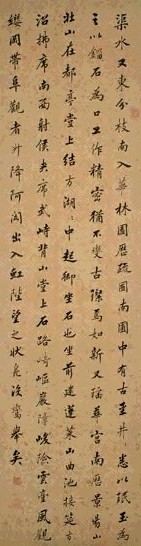 渠水又東分枝南入華林園歷疏圃南圃中有古玉井悉以珉玉為
之以緇石為口工作精密猶不變古璨焉如新又瑤華宮南歷景陽山
北山在都亭堂上結方湖湖中起御坐石也坐前建蓬萊山曲池接筵飛
沼拂席南面射侯夾席武峙背山堂上石路崎嶇巖障峻險雲臺風觀
纓岡帶阜觀者升降阿閣出入虹陛望之狀鳧沒鸞舉矣